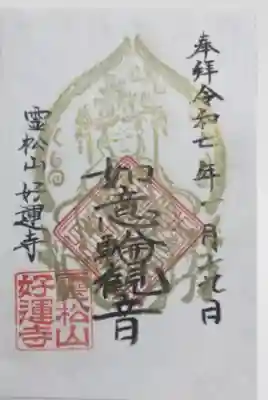 奉拝 令和七年一月九日
如意輪観音
霊松山 好運寺
霊松山
好運寺